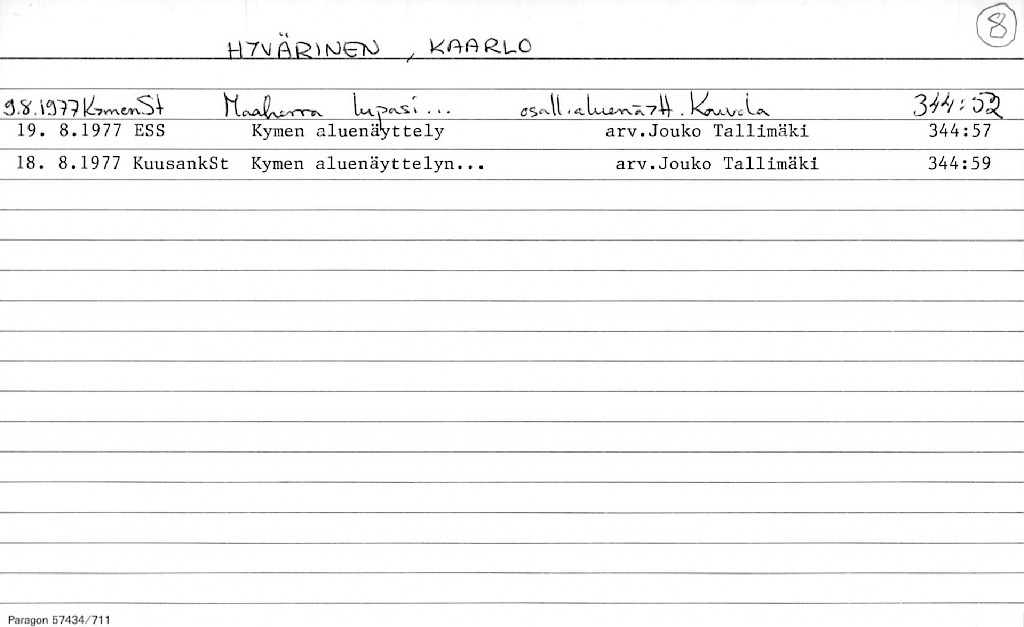 8
HYVÄRINEN, KAARLO
9.8.1977 KymenSt Maaherra lupasi... osall.aluenäytt. Kouvola 344:52
19. 8.1977 ESS Kymen aluenäyttely arv.Jouko Tallimäki 344:57
18. 8.1977 KuusankSt Kymen aluenäyttelyn... arv.Jouko Tallimäki 344:59
Paragon 57434/711